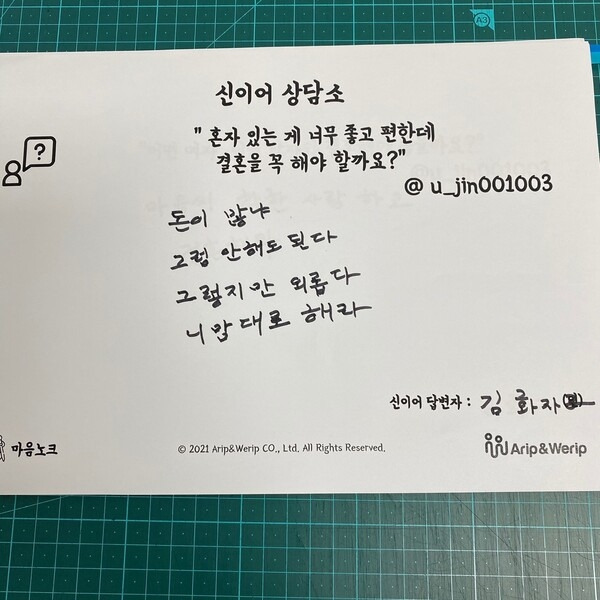 A3
신이어 상담소
?
" 혼자 있는 게 너무 좋고 편한데
결혼을 꼭 해야 할까요?"
@ u_jin001003
돈이 많냐
그럼 안해도 된다
그렇지만 외롭다
니맘대로 해라
신이어 답변자 : 김 화자
마음노크
© 2021 Arip&Werip CO., Ltd. All Rights Reserved.
Arip&Werip